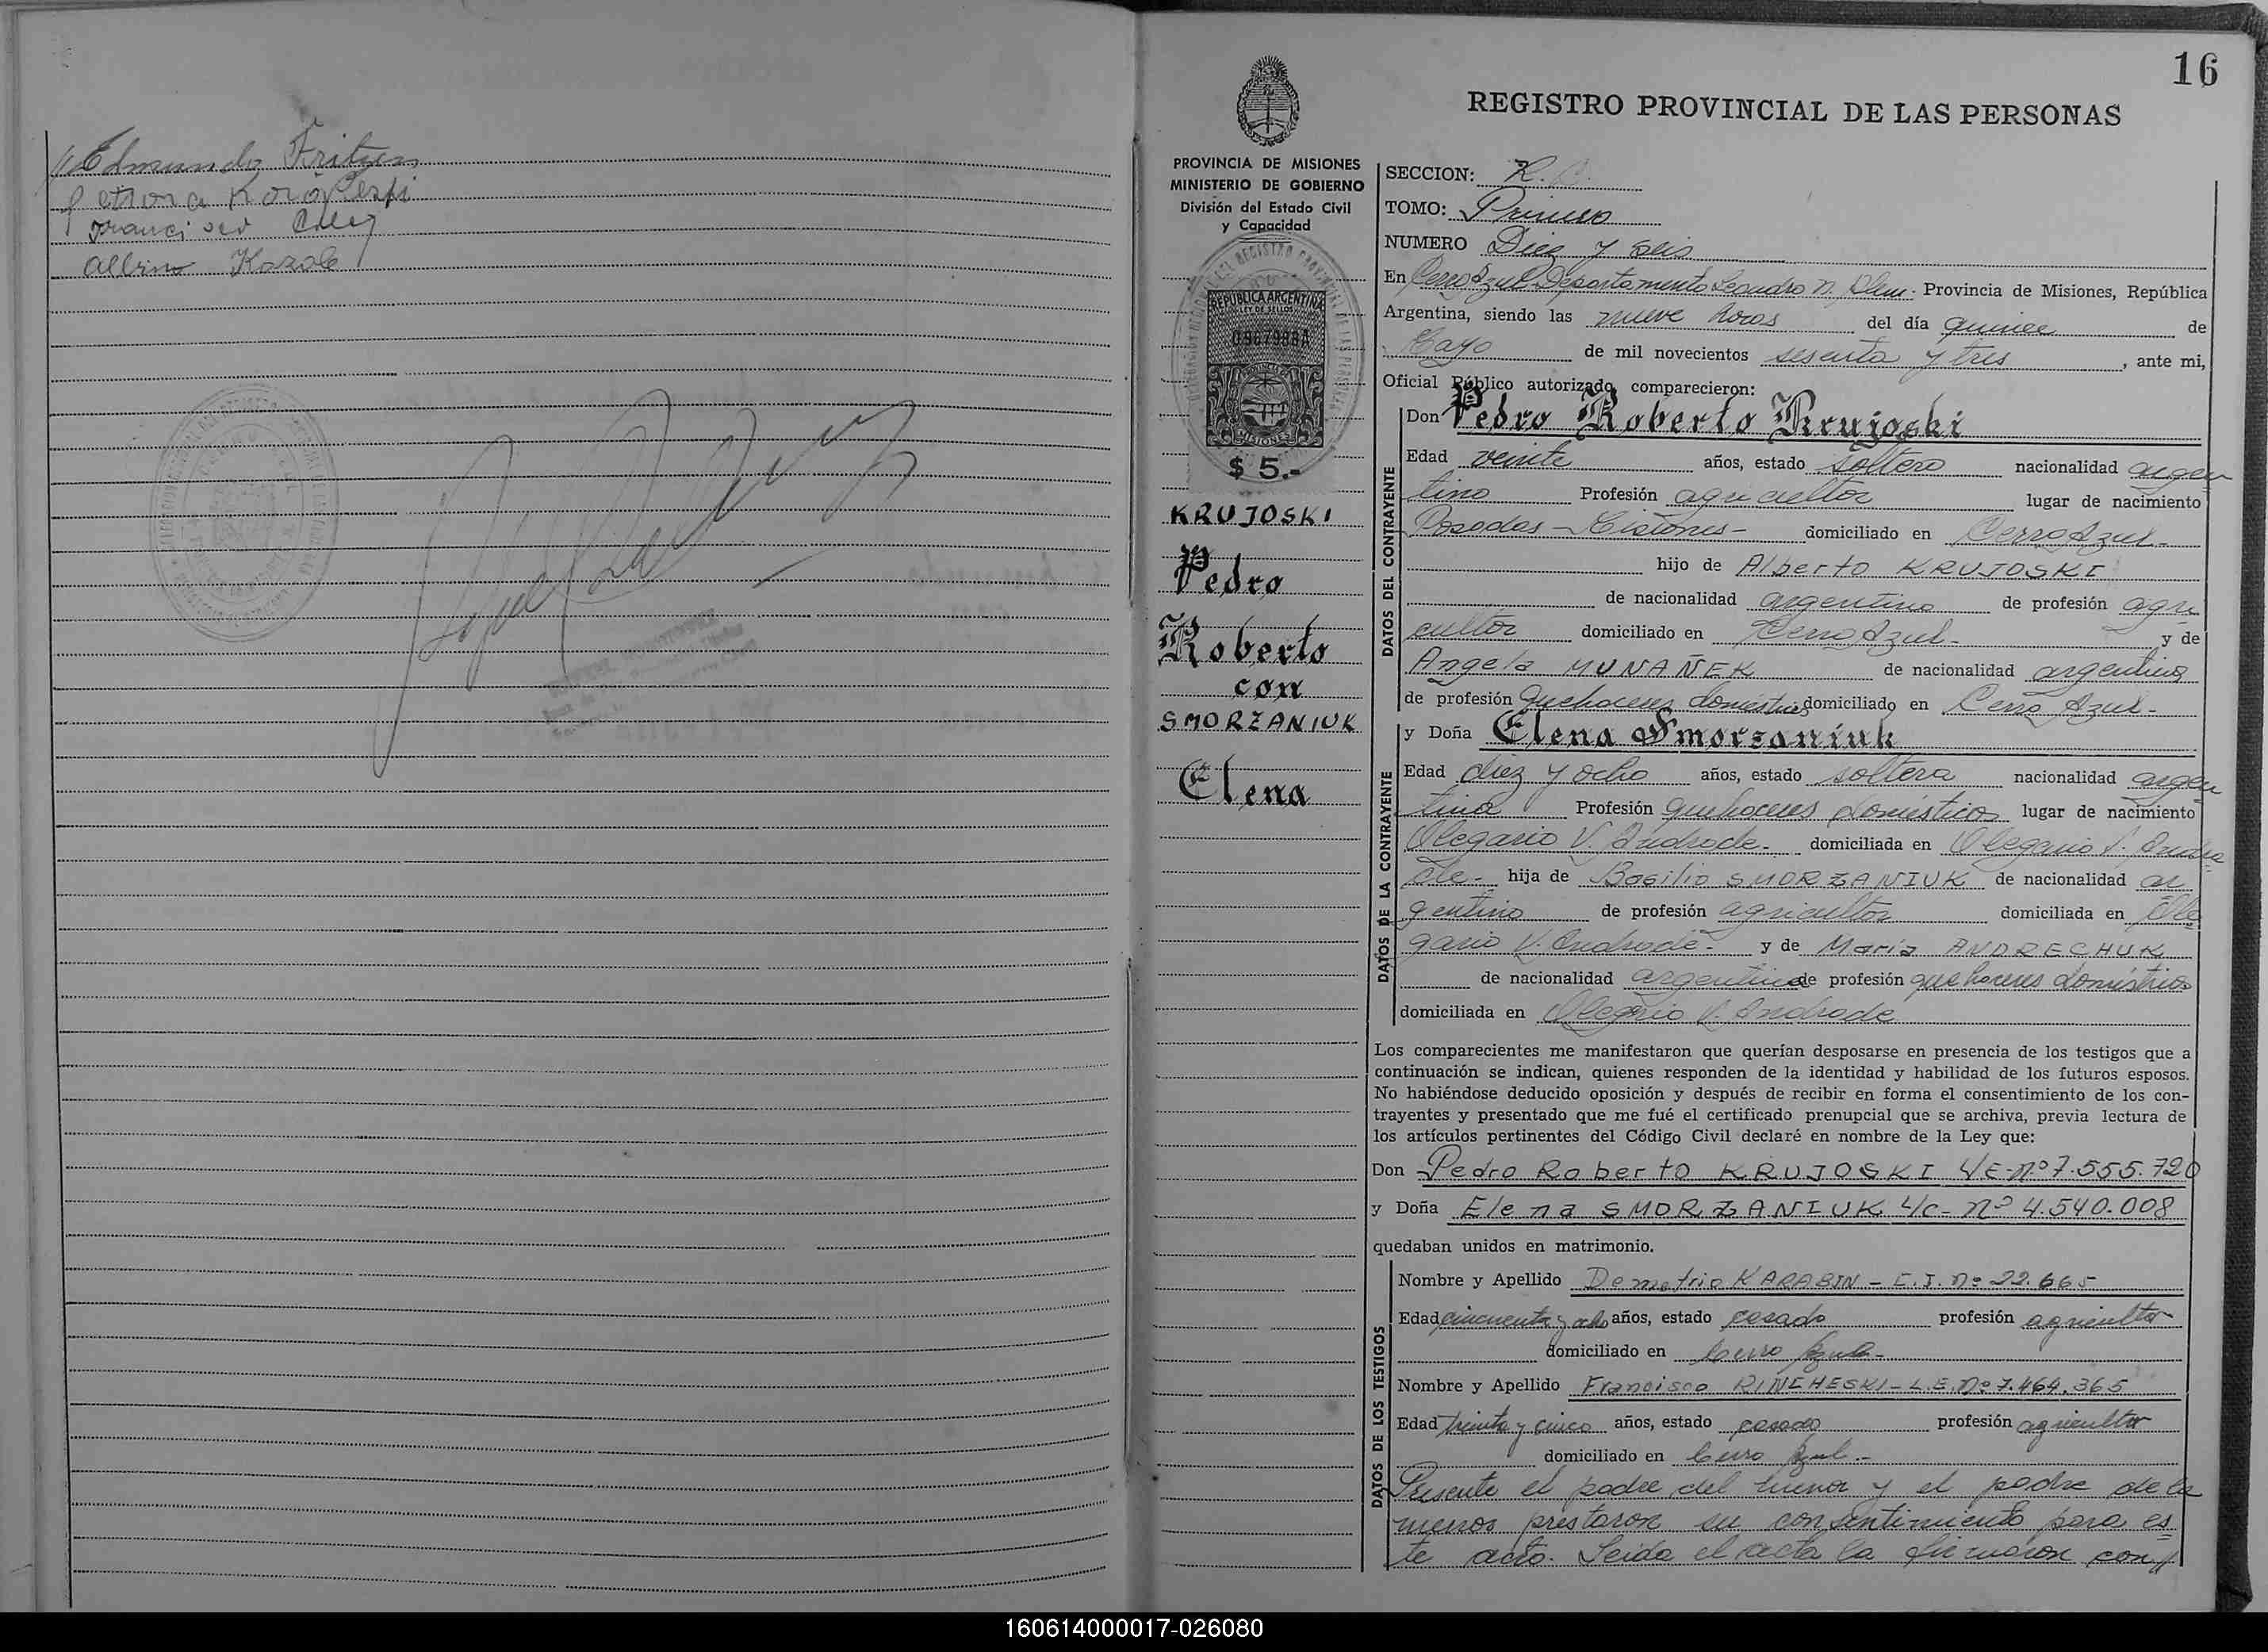 Edmundo Fritzen
Petrona
Francisco
Albino Kozole
16
REGISTRO PROVINCIAL DE LAS PERSONAS
PROVINCIA DE MISIONES
MINISTERIO DE GOBIERNO
División del Estado Civil
y Capacidad
REPUBLICA ARGENTINA
LEY DE SELLOS
0967988A
PROVINCIA DE
MISIONES
$ 5.-
KRUJOSKI
Pedro
Roberto
con
SMORZANIUK
Elena
SECCION:
TOMO: Primero
NUMERO Diez y seis
En Cerro Azul Departamento Leandro N. Alem. Provincia de Misiones, República
Argentina, siendo las nueve horas del día quince de
Mayo de mil novecientos sesenta y tres, ante mi,
Oficial Público autorizado, comparecieron:
DATOS DEL CONTRAYENTE
Don Pedro Roberto Krujoski
Edad veinte años, estado soltero nacionalidad argen
tino Profesión agricultor lugar de nacimiento
Posadas - Misiones - domiciliado en Cerro Azul -
hijo de Alberto KRUJOSKI
de nacionalidad argentino de profesión agri
cultor domiciliado en Cerro Azul - y de
Angela MUNAÑEK de nacionalidad argentina
de profesión quehaceres domésticos domiciliado en Cerro Azul -
DATOS DE LA CONTRAYENTE
y Doña Elena Smorzaniuk
Edad diez y ocho años, estado soltera nacionalidad argen
tina Profesión quehaceres domésticos lugar de nacimiento
Olegario V. Andrade - domiciliada en Olegario V. Andra
de - hija de Basilio SMORZANIUK de nacionalidad ar
gentino de profesión agricultor domiciliada en Ole
gario V. Andrade - y de María ANDRECHUK
de nacionalidad argentina de profesión quehaceres domésticos
domiciliada en Olegario V. Andrade
Los comparecientes me manifestaron que querían desposarse en presencia de los testigos que a
continuación se indican, quienes responden de la identidad y habilidad de los futuros esposos.
No habiéndose deducido oposición y después de recibir en forma el consentimiento de los con-
trayentes y presentado que me fué el certificado prenupcial que se archiva, previa lectura de
los artículos pertinentes del Código Civil declaré en nombre de la Ley que:
Don Pedro Roberto KRUJOSKI L/E - nº 7.555.720
y Doña Elena SMORZANIUK L/C - nº 4.540.008
quedaban unidos en matrimonio.
DATOS DE LOS TESTIGOS
Nombre y Apellido Demetrio KARABIN - C.I. nº 22.665
Edad cincuenta y ocho años, estado casado profesión agricultor
domiciliado en Cerro Azul -
Nombre y Apellido Francisco RINCHESKI - L.E. nº 7.464.365
Edad treinta y cinco años, estado casado profesión agricultor
domiciliado en Cerro Azul -
Presente el padre del menor y el padre de la
menor prestaron su consentimiento para es
te acto. Leida el acta la firmaron con//
160614000017-026080